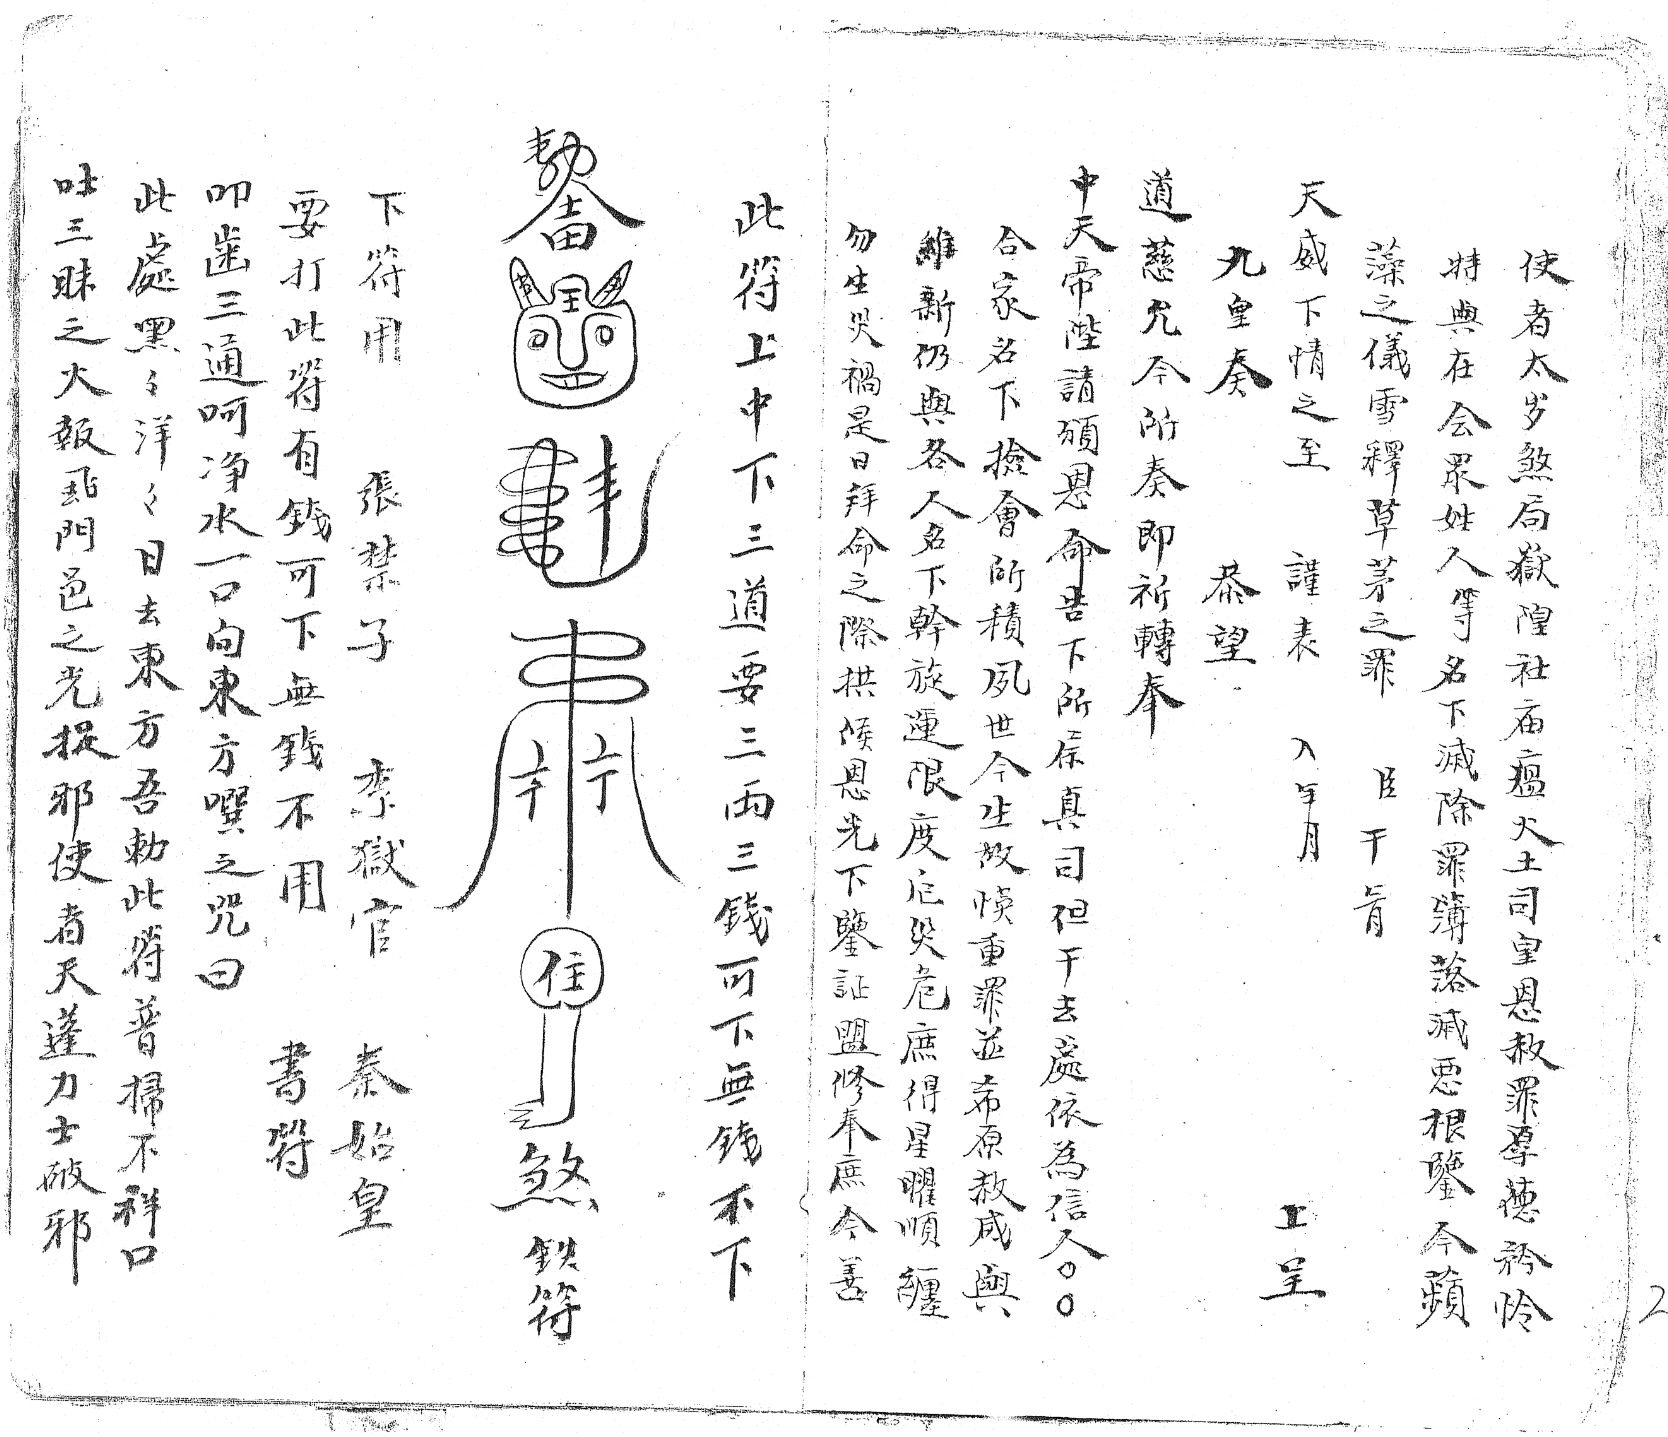 使者太岁煞局獄隍社庙瘟火土司皇恩赦罪辜德矜怜
特與在会眾姓人等名下滅除罪簿落滅惡根鑒今蘋
藻之儀雪釋草茅之罪 臣干肯
天威下情之至 謹表 入年月 上呈
九皇奏 恭望
道慈允今所奏即祈轉奉
中天帝陛請頒恩命告下所属真司但干去處依為信人○○
合家名下撿會所積夙世今生故悞重罪並希原赦咸與
維新仍與各人名下斡旋運限度厄災危庶得星曜順纏
勿生災禍是日拜命之際拱候恩光下鑒証盟修奉庶今善
此符上中下三道要三両三錢可下無錢不下
勅
住
煞
鉄符
下符用 張禁子 李獄官 秦始皇
要打此符有錢可下無錢不用 書符
叩齒三通呵净水一口向東方噀之咒曰
此處黑々洋々日去東方吾勅此符普掃不祥口
吐三昧之火報飛門邑之光捉邪使者天蓬力士破邪
2